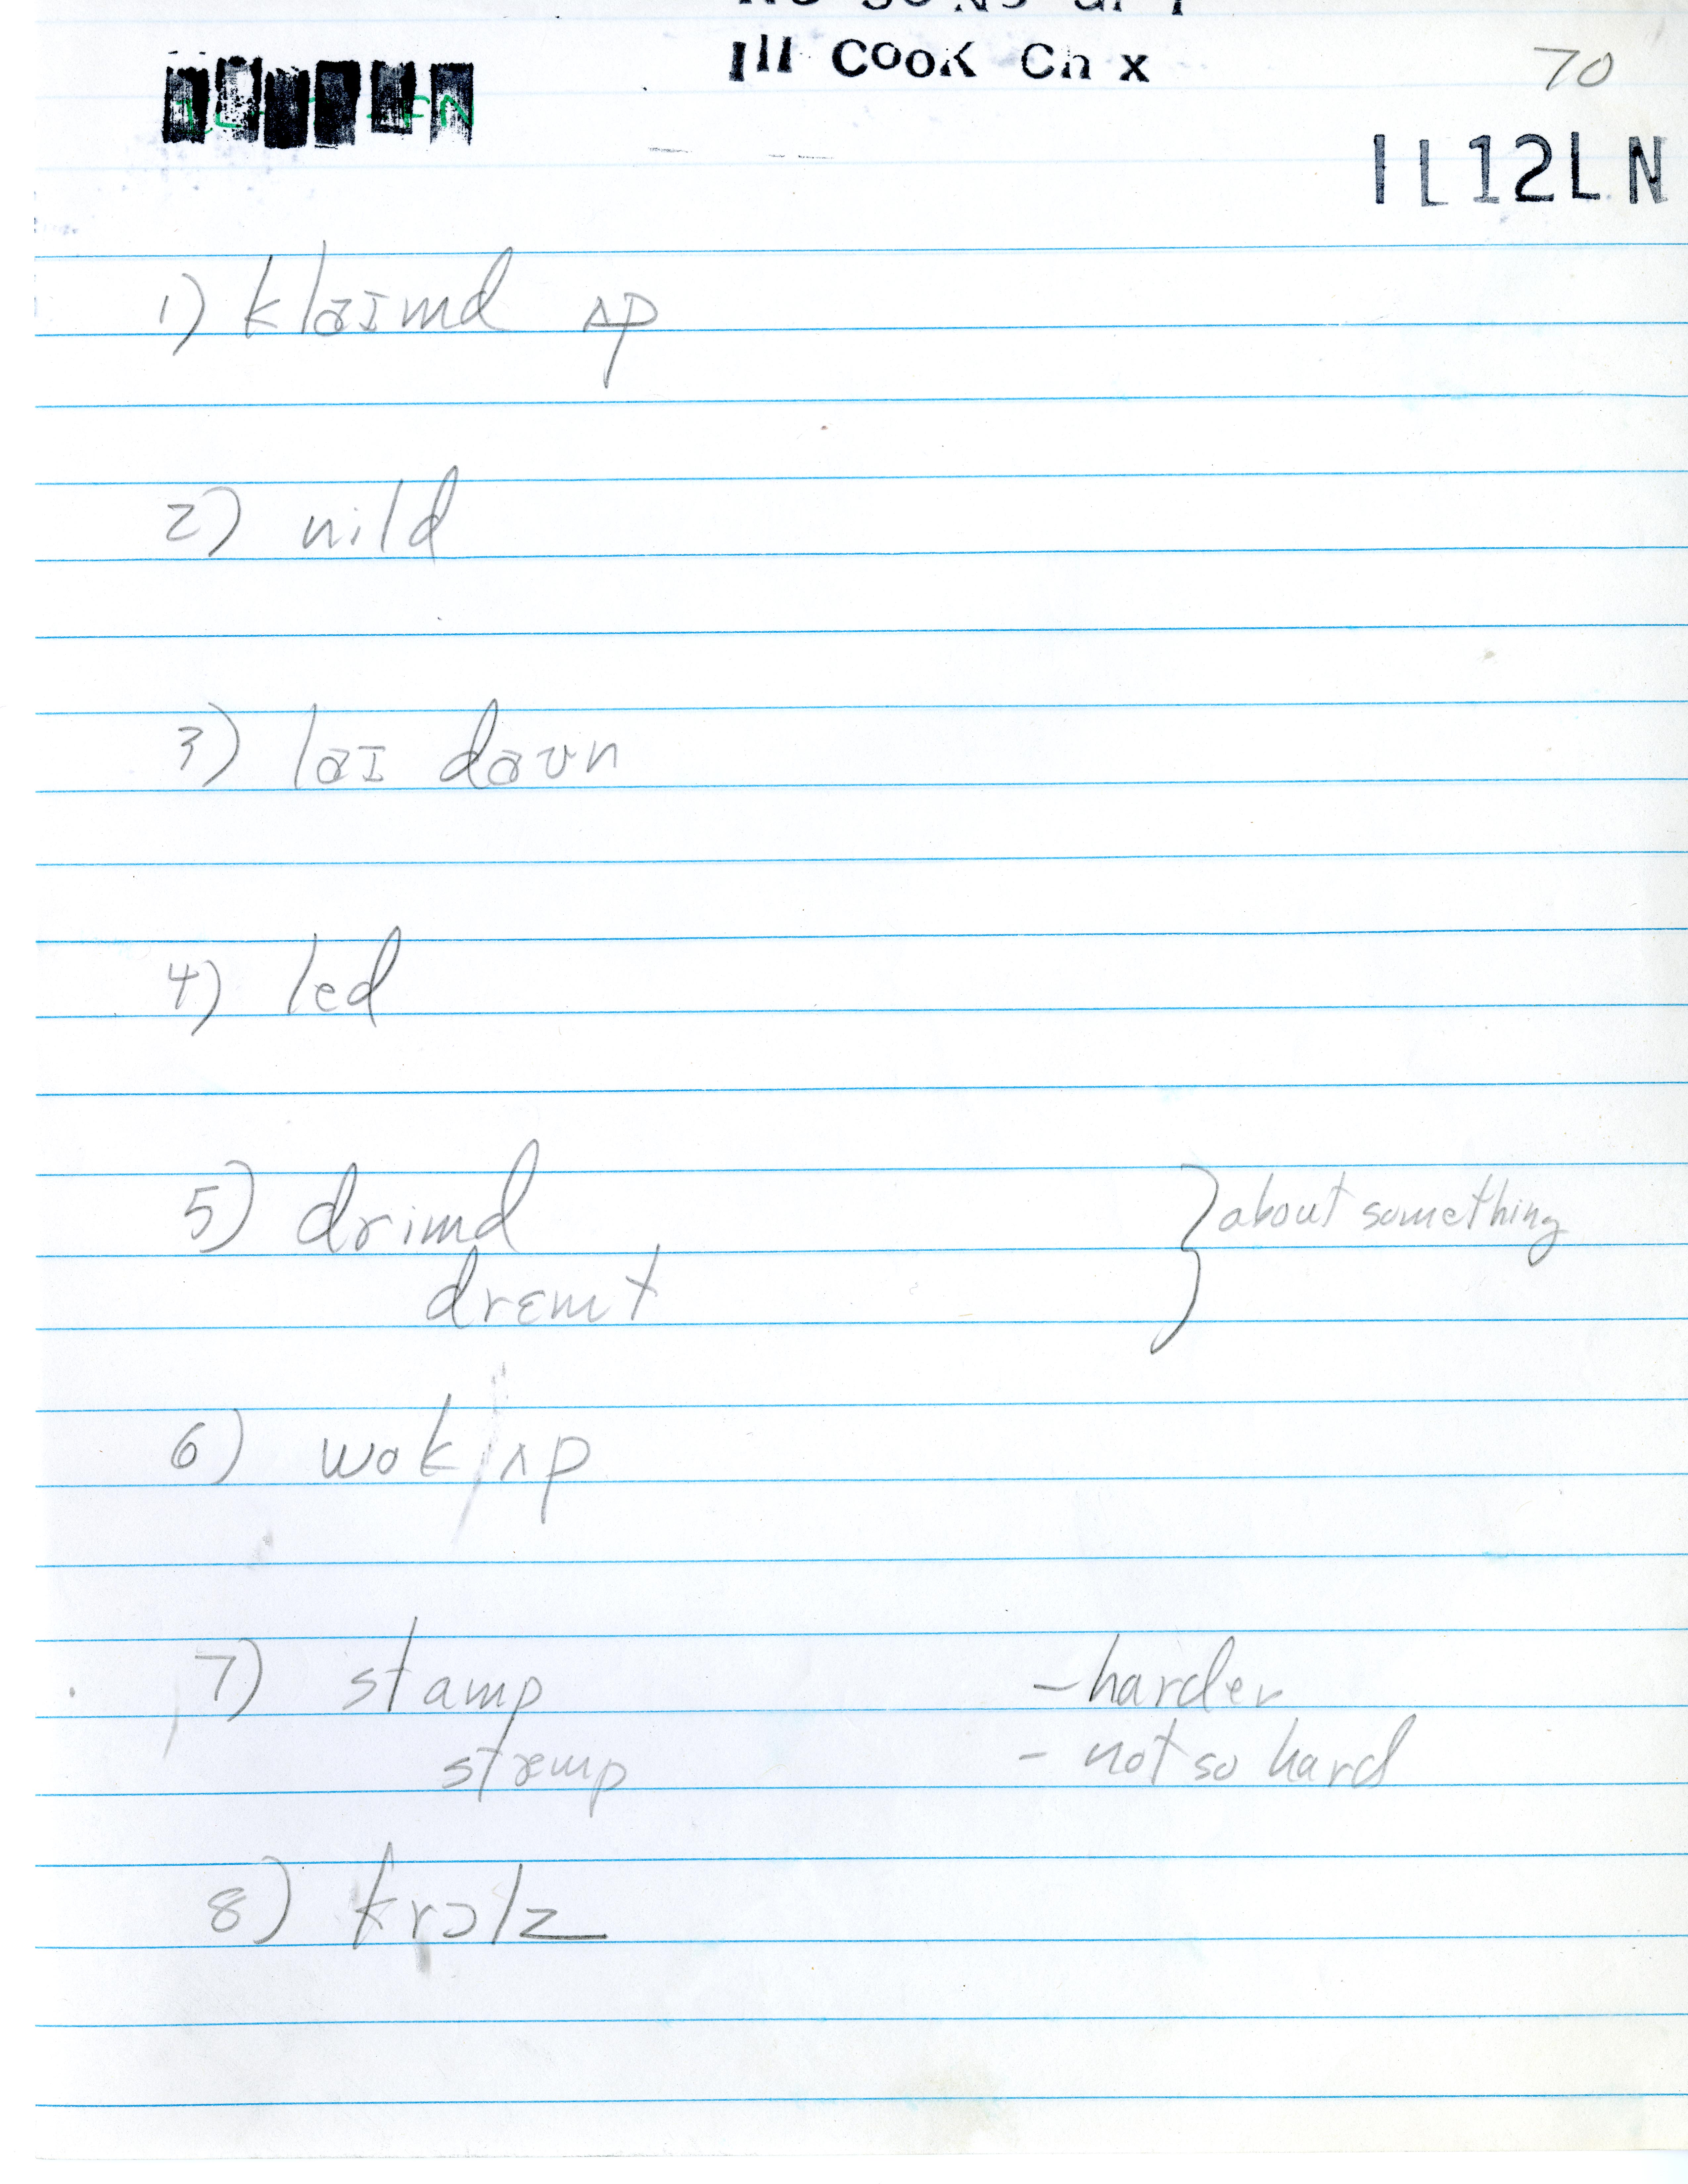 Ill Cook Ch x
70
IL12LN
1) klaɪmd ʌp
2) nild
3) laɪ daʊn
4) led
5) drimd } about something
drɛmt
6) wok | ʌp
7) stamp - harder
stæmp - not so hard
8) krɔlz